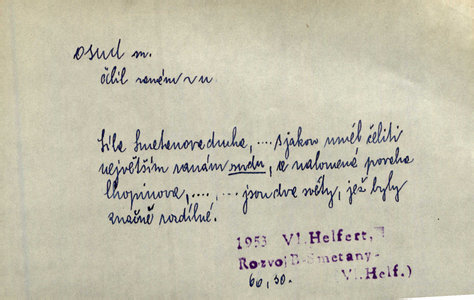 osud m.
čelil ranám osudu
Síla Smetanova ducha, .... s jakou uměl čeliti
největším ranám osudu, a nalomená povaha
Chopinova, ...., .... jsou dva světy, jež byly
značně rozdílné.
1953 Vl. Helfert,
Rozvoj B. Smetany-
60, 30. Vl. Helf.)